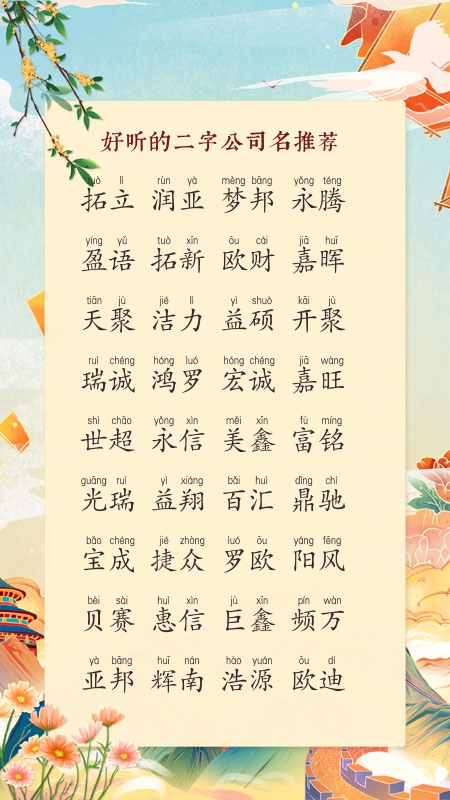 好听的二字公司名推荐
tuò lì rùn yà mèng bāng yǒng téng
拓立 润亚 梦邦 永腾
yíng yǔ tuò xīn ōu cái jiā huī
盈语 拓新 欧财 嘉晖
tiān jù jié lì yì shuò kāi jù
天聚 洁力 益硕 开聚
ruì chéng hóng luó hóng chéng jiā wàng
瑞诚 鸿罗 宏诚 嘉旺
shì chāo yǒng xìn měi xīn fù míng
世超 永信 美鑫 富铭
guāng ruì yì xiáng bǎi huì dǐng chí
光瑞 益翔 百汇 鼎驰
bǎo chéng jié zhòng luó ōu yáng fēng
宝成 捷众 罗欧 阳风
bèi sài huì xìn jù xīn pín wàn
贝赛 惠信 巨鑫 频万
yà bāng huī nán hào yuán ōu dí
亚邦 辉南 浩源 欧迪